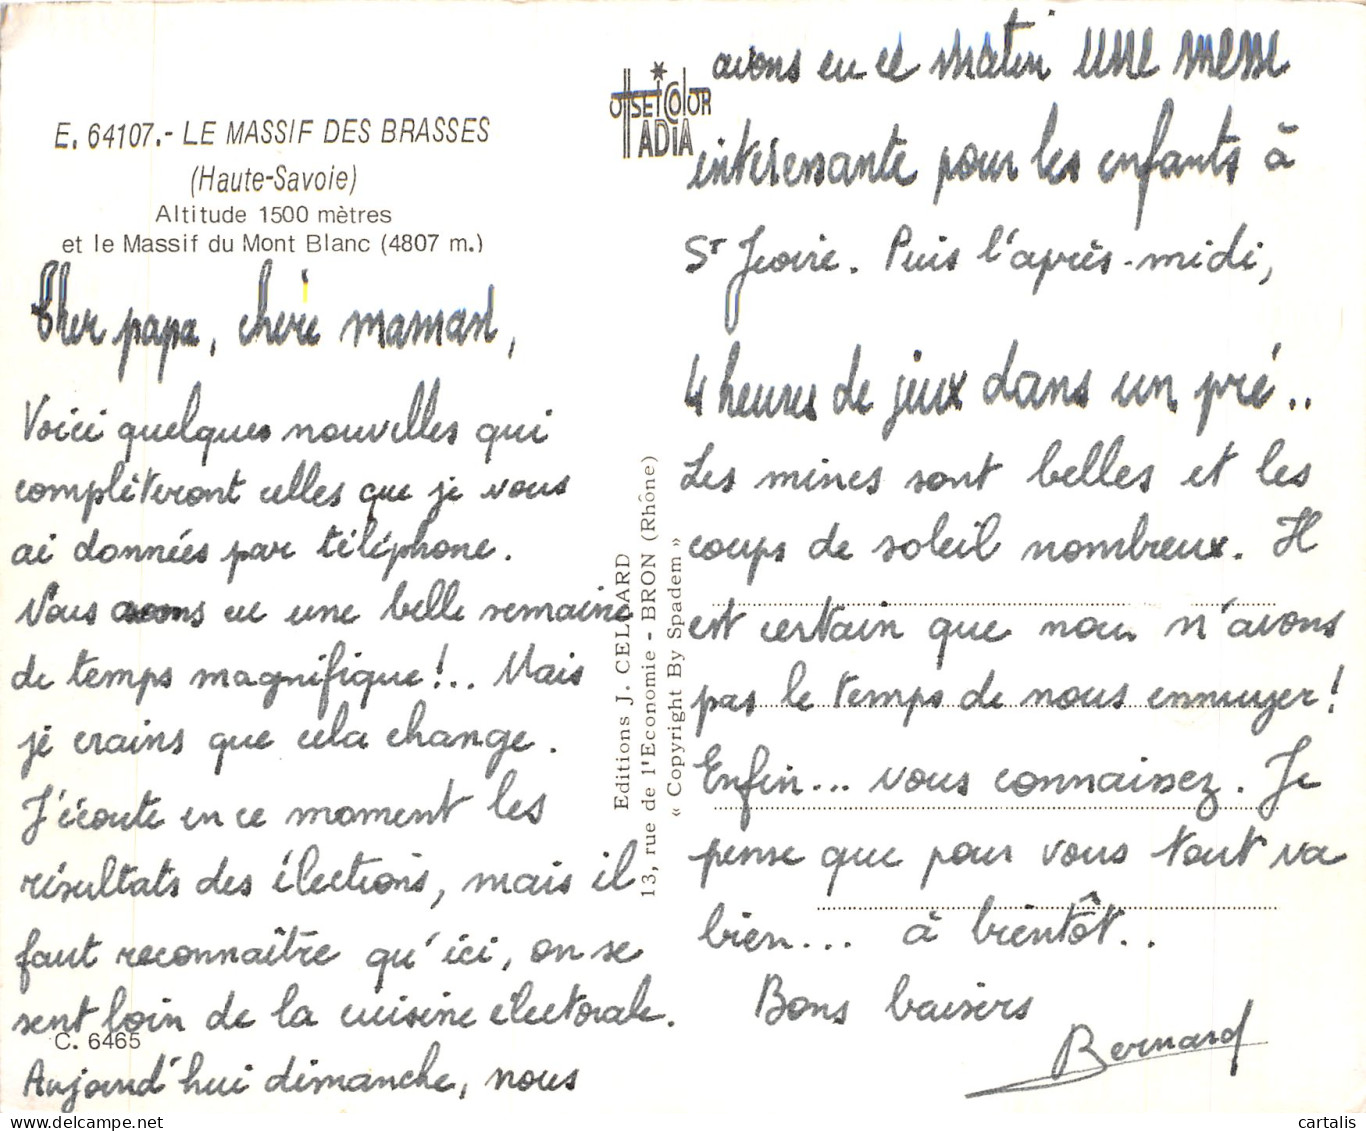 E. 64107.- LE MASSIF DES BRASSES
(Haute-Savoie)
Altitude 1500 mètres
et le Massif du Mont Blanc (4807 m.)
Cher papa, chère maman,
Voici quelques nouvelles qui
complèteront celles que je vous
ai données par téléphone.
Nous avons eu une belle semaine
de temps magnifique!.. Mais
je crains que cela change.
J'écoute en ce moment les
résultats des élections, mais il
faut reconnaître qu'ici, on se
sent loin de la cuisine électorale.
C. 6465
Aujourd'hui dimanche, nous
OFFSETCOLOR
IADIA
Editions J. CELLARD
13, rue de l'Economie - BRON (Rhône)
« Copyright By Spadem »
avons eu ce matin une messe
intéressante pour les enfants à
St Jeoire. Puis l'après-midi,
4 heures de jeux dans un pré..
Les mines sont belles et les
coups de soleil nombreux. Il
est certain que nous n'avons
pas le temps de nous ennuyer!
Enfin... vous connaissez. Je
pense que pour vous tout va
bien... à bientôt..
Bons baisers
Bernard
cartalis